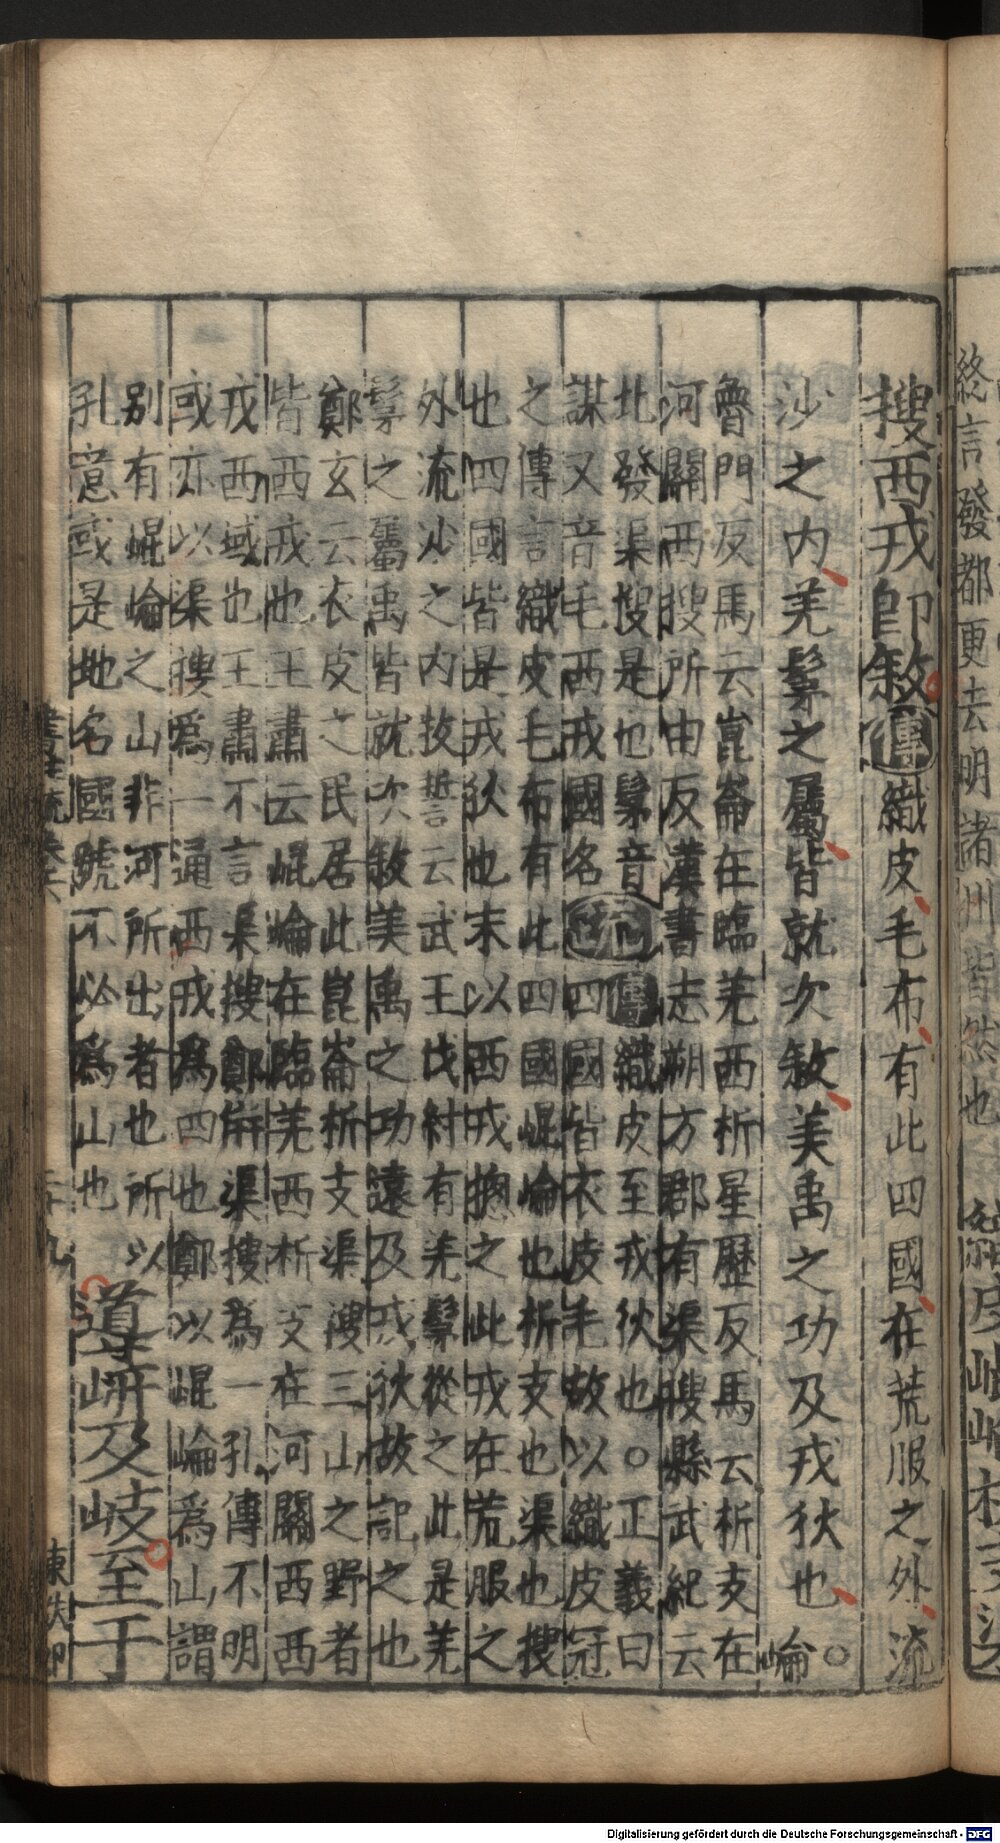 終言發都更去明諸州皆然也
皮崐崘析支渠
搜西戎即敘傳織皮毛布有此四國在荒服之外流
沙之内羌髳之屬皆就次敘美禹之功及戎狄也○崘
魯門反馬云崑崙在臨羌西析星歷反馬云析支在
河關西搜所由反漢書志朔方郡有渠搜縣武紀云
北發渠搜是也髳音
謀又音毛西戎國名
疏
傳織皮至戎狄也○正義曰
四國皆衣皮毛故以織皮冠
之傳言織皮毛布有此四國崐崘也析支也渠也搜
也四國皆是戎狄也末以西戎揔之此戎在荒服之
外流沙之内牧誓云武王伐紂有羌髳從之此是羌
髳之屬禹皆就次敘美禹之功遠及戎狄故記之也
鄭玄云衣皮之民居此崑崙析支渠溲三山之野者
皆西戎也王肅云崐崘在臨羌西析支在河關西西
戎西域也王肅不言渠搜鄭并渠搜為一孔傳不明
或亦以渠搜爲一通西戎爲四也鄭以崐崘爲山謂
别有崐崘之山非河所出者也所以
孔意或是地名國號不必爲山也
導岍及岐至于
書注疏卷六
三十九
Digitalisierung gefördert durch die Deutsche Forschungsgemeinschaft - DFG